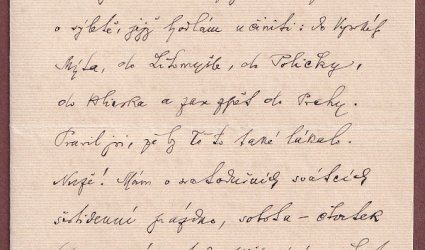 o výletě, jejž hodlám učiniti: do Vysokéh
Mýta, do Litomyšle, do Poličky,
do Hlinska a zas zpět do Prahy.
Pravil jsi, že by Tě to také lákalo.
Nuže! Mám o svatodušních svátcích
šestidenní prázdno, sobota – čtvrtek